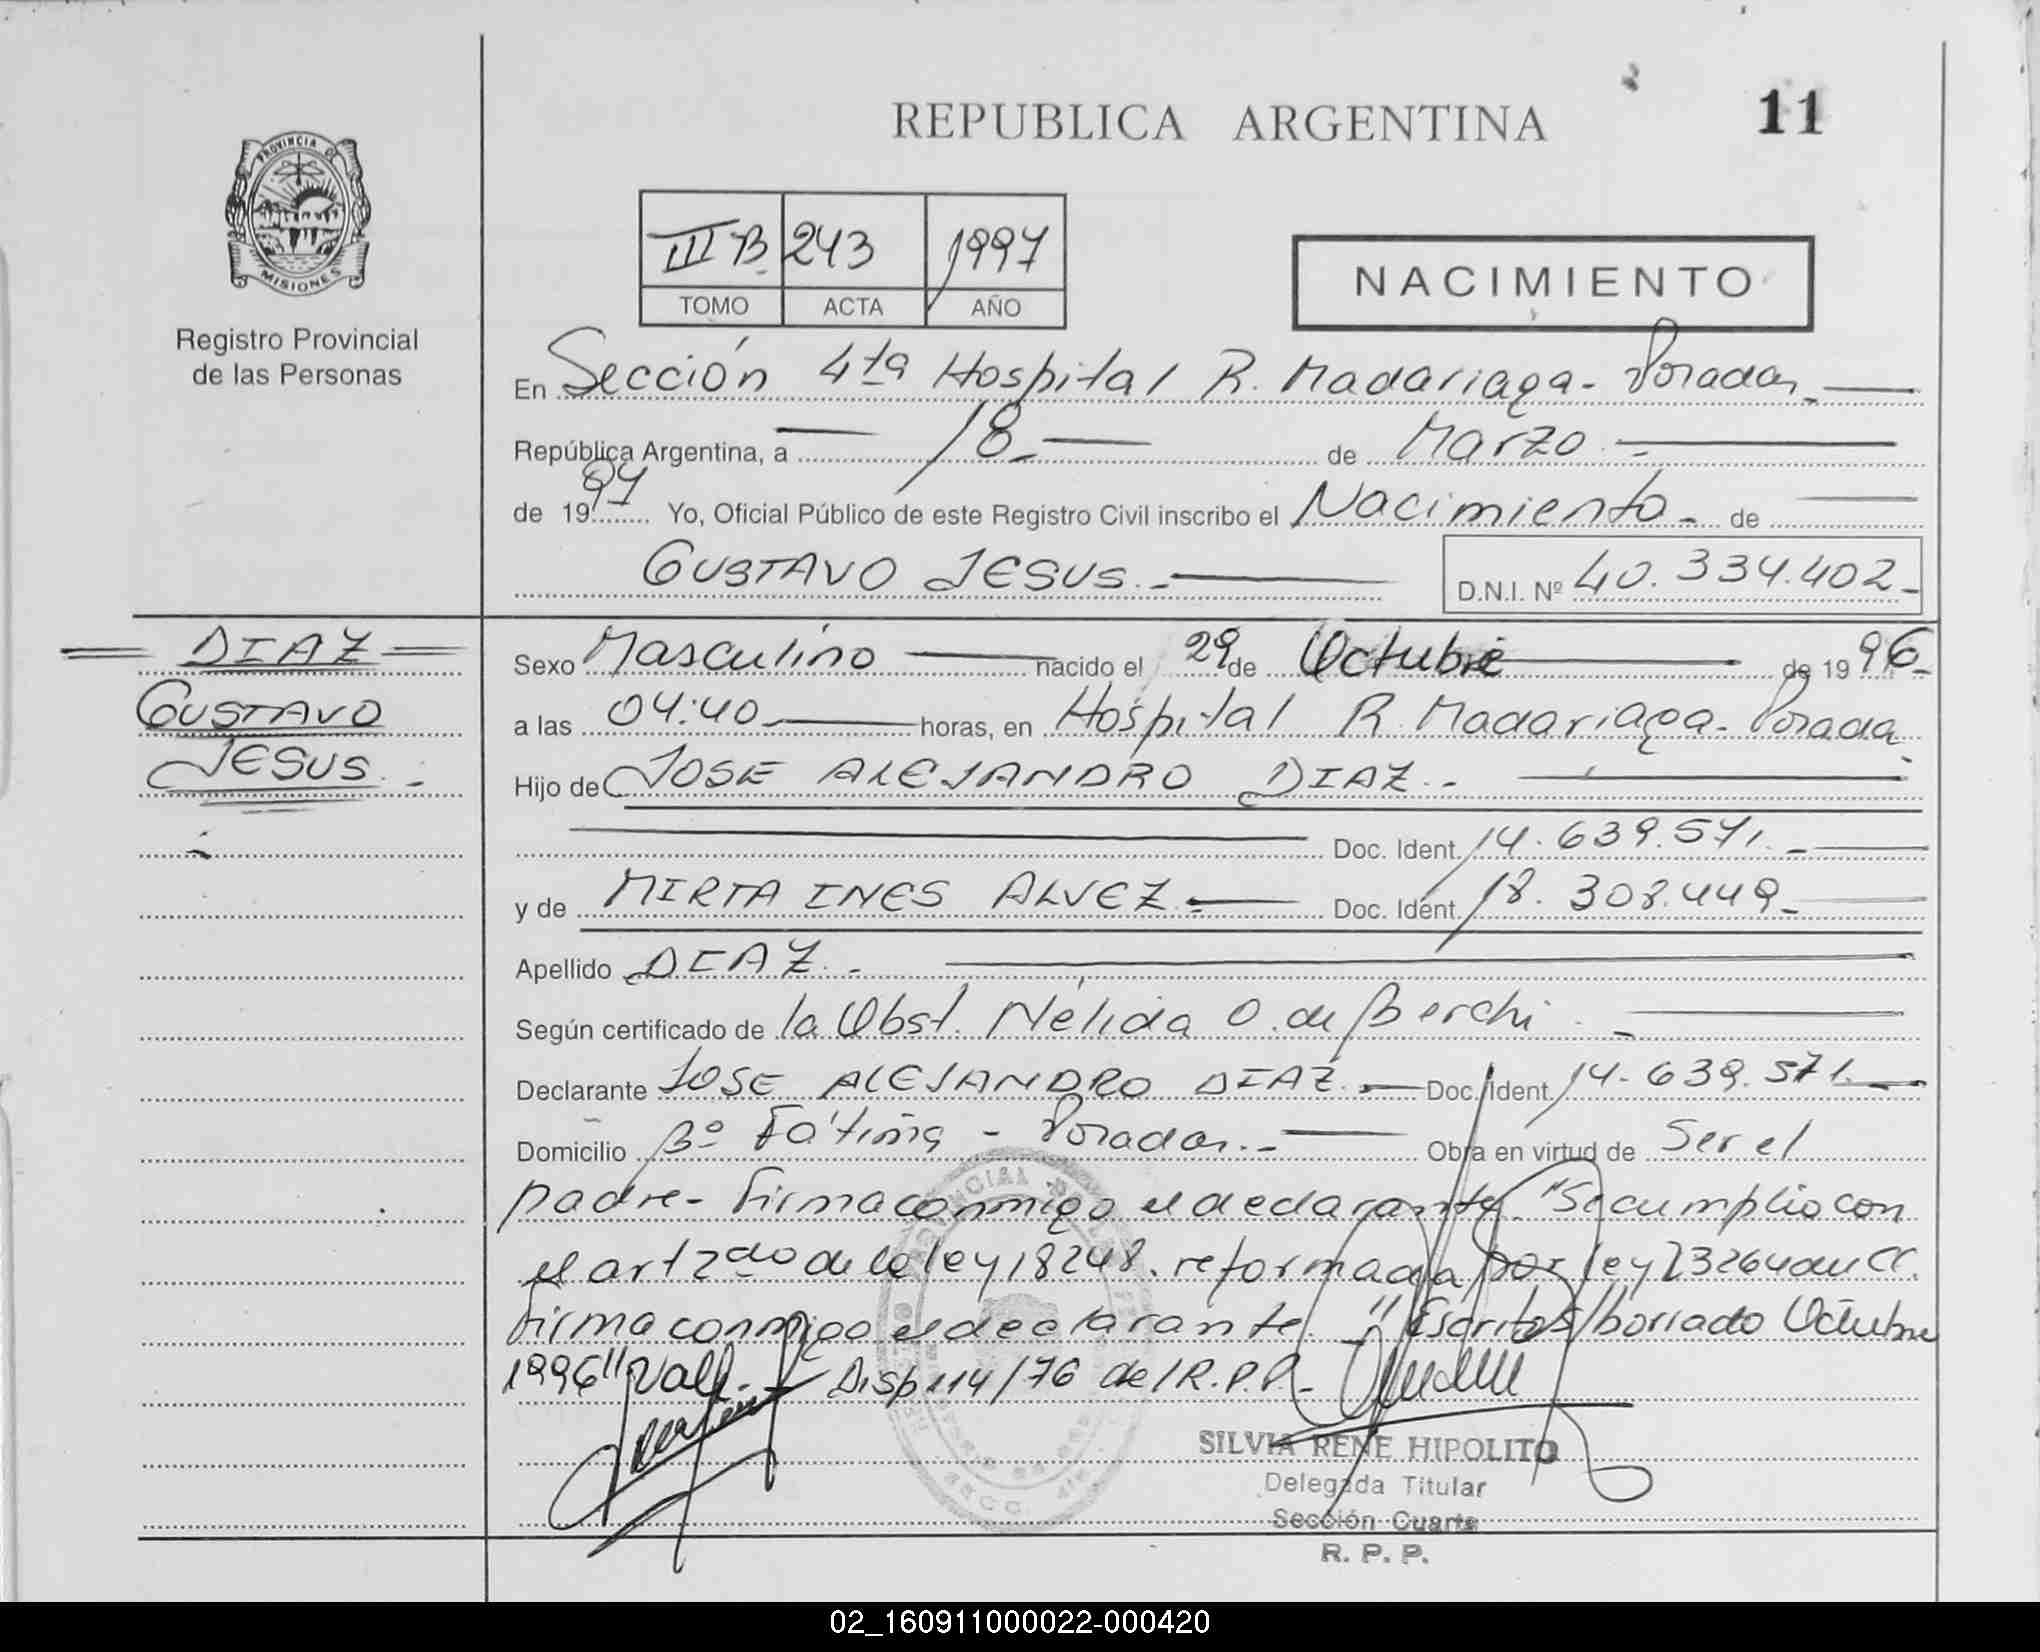 REPUBLICA ARGENTINA 11
PROVINCIA DE
MISIONES
Registro Provincial
de las Personas
III B 243 1997
TOMO ACTA AÑO
NACIMIENTO
En Sección 4ta Hospital R. Madariaga - Posadas.
República Argentina, a 18 - de Marzo -
de 1997 Yo, Oficial Público de este Registro Civil inscribo el Nacimiento - de
GUSTAVO JESUS. - D.N.I. Nº 40.334.402 -
= DIAZ =
GUSTAVO
JESUS. -
Sexo Masculino nacido el 29 de Octubre de 1996 -
a las 04:40 horas, en Hospital R. Madariaga - Posadas
Hijo de JOSE ALEJANDRO DIAZ. -
Doc. Ident 14.639.571. -
y de MIRTA INES ALVEZ - Doc. Ident 18.308.449 -
Apellido DIAZ. -
Según certificado de la Obst. Nélida O. de Berchi. -
Declarante JOSE ALEJANDRO DIAZ. - Doc. Ident. 14.639.571. -
Domicilio Bº Fátima - Posadas. - Obra en virtud de Ser el
padre - Firma conmigo el declarante. "Se cumplio con
el art 2do de la ley 18248. reformada por ley 23264 del CC.
firma conmigo el declarante. - "Escrito s/borrado Octubre
1996" Vale. - Disp 114/76 del R.P.P. -
SILVIA RENE HIPOLITO
Delegada Titular
Sección Cuarta
R. P. P.
02_160911000022-000420